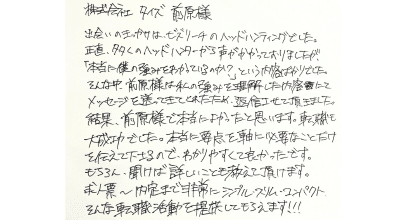 株式会社 タイズ 前原様
出会いのキッカケは、ビズリーチのヘッドハンティングでした。
正直、多くのヘッドハンターから声がかかっておりましたが、
「本当に僕の強みをわかっているのか?」という内容ばかりでした。
そんな中、前原様は私の強みを理解した内容でに
メッセージを送って来てくれたため、返信させて頂きました。
結果、前原様で本当によかったと思います。転職も
大成功でした。本当に要点を軸に必要なことだけ
を伝えて下さるので、わかりやすくて良かったです。
もちろん、聞けば詳しいことも教えて頂けます。
求人票～内定まで非常にシンプル・スリム・コンパクト
そんな転職活動を提供してもらえます!!!